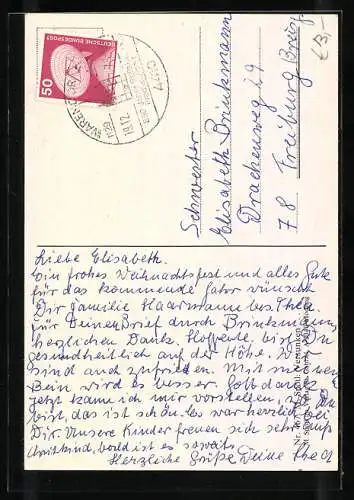 € 3,-
DEUTSCHE BUNDESPOST
50
WARENDORF
19.12.
4410
Schwester
Elisabeth Brinkmann
Drachenweg 19
78 Freiburg Breisg
Liebe Elisabeth.
Ein frohes Weihnachtsfest und alles Gute
für das kommende Jahr wünscht
Dir Familie Haarmann bes. Thea.
Für Deinen Brief durch Brinkmann,
herzlichen Dank. Hoffentl. bist Du
gesundheitlich auf der Höhe. Wir
sind auch zufrieden. Mit meinem
Bein wird es besser. Gott dank
jetzt kann ich mir vorstellen, wo Du
bist, das ist schön. es war herzlich bei
Dir. Unsere Kinder freuen sich sehr aufs
Christkind, bald ist es soweit.
Herzliche Grüße Deine Thea